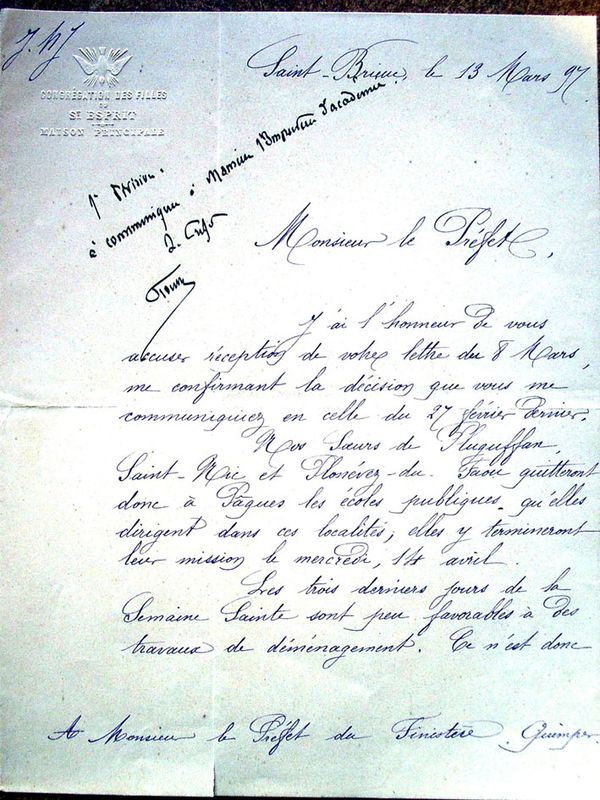 J. h J
CONGRÉGATION DES FILLES
DU
ST ESPRIT
MAISON PRINCIPALE
Saint-Brieuc, le 13 Mars 97.
1e Division.
à communiquer à Monsieur l'Inspecteur d'académie
Monsieur le Préfet,
J'ai l'honneur de vous
accuser réception de votre lettre du 8 Mars,
me confirmant la décision que vous me
communiquiez en celle du 27 février dernier.
Nos Sœurs de Pluguffan,
Saint-Nic et Plonévez-du-Faou quitteront
donc à Pâques les écoles publiques qu'elles
dirigent dans ces localités; elles y termineront
leur mission le mercredi, 14 avril.
Les trois derniers jours de la
Semaine Sainte sont peu favorables à des
travaux de déménagement. Ce n'est donc
A Monsieur le Préfet du Finistère. Quimper.